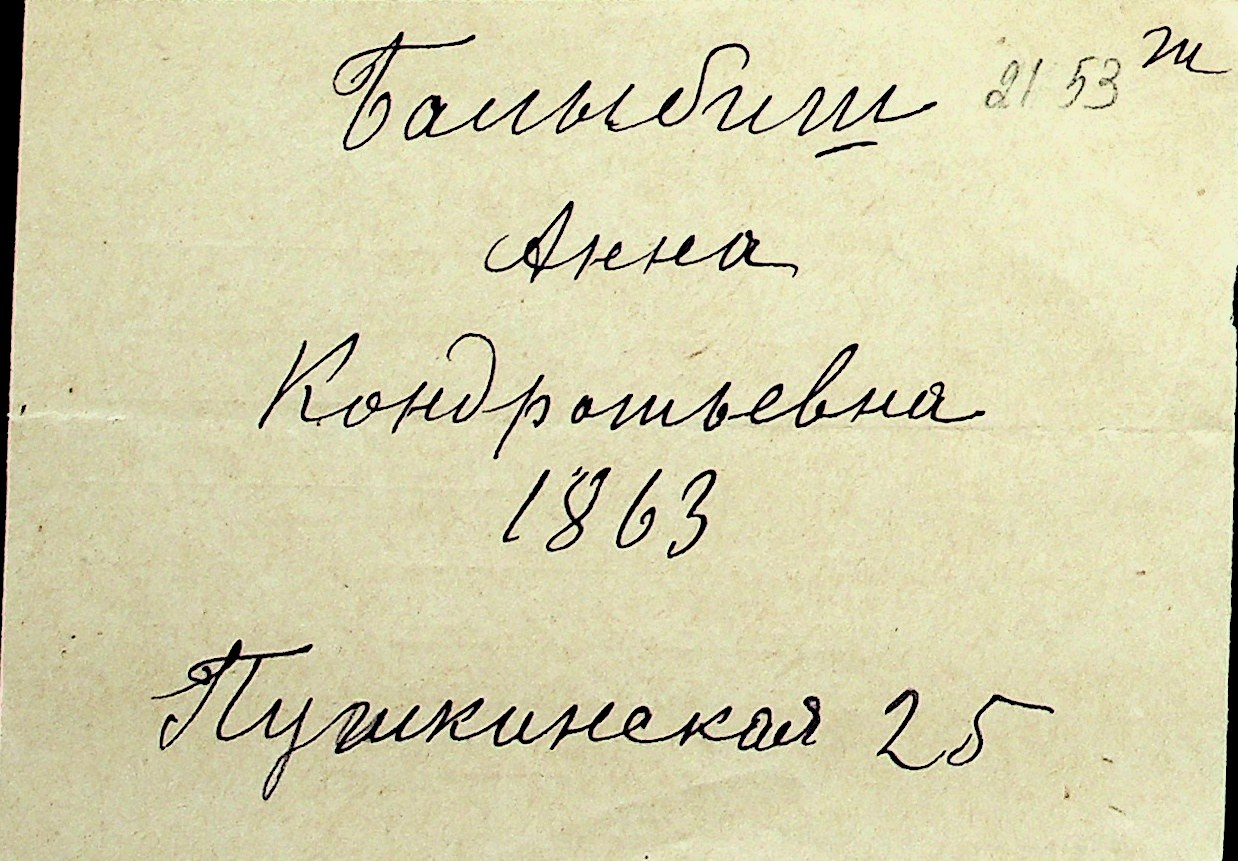 Балыбиш 21 53
Анна
Кондратьевна
1863
Пушкинская 25